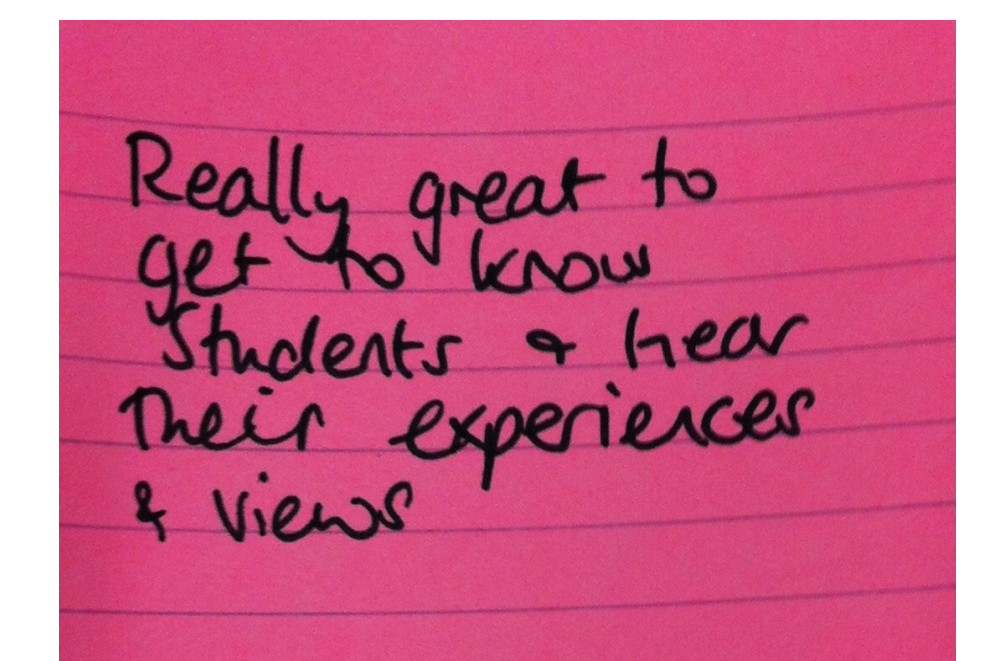 Really great to
get to know
Students & hear
Their experiences
& views